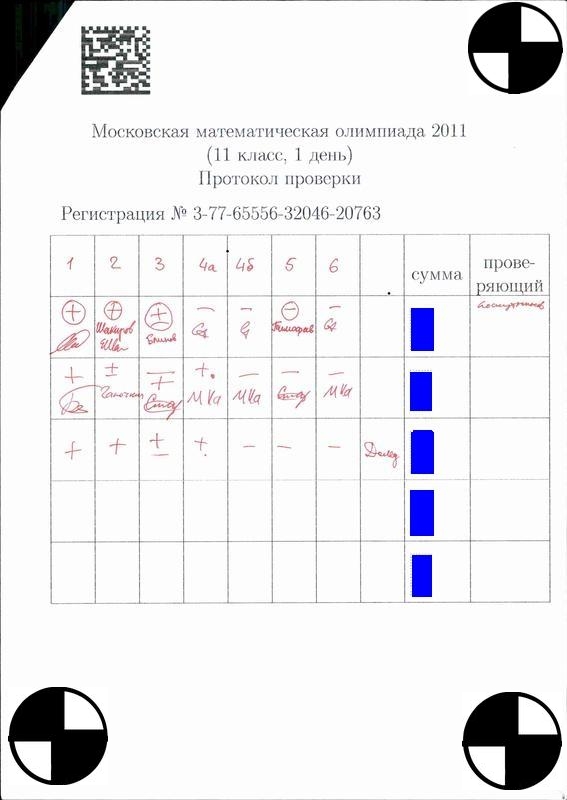 Московская математическая олимпиада 2011
(11 класс, 1 день)
Протокол проверки
Регистрация № 3-77-65556-32046-20763
1 2 3 4а 4б 5 6 сумма прове-
ряющий
+ + + − − − −
Шакиров
+ ± ∓ +. − − −
МКа МКа МКа
+ + ± +. − − −